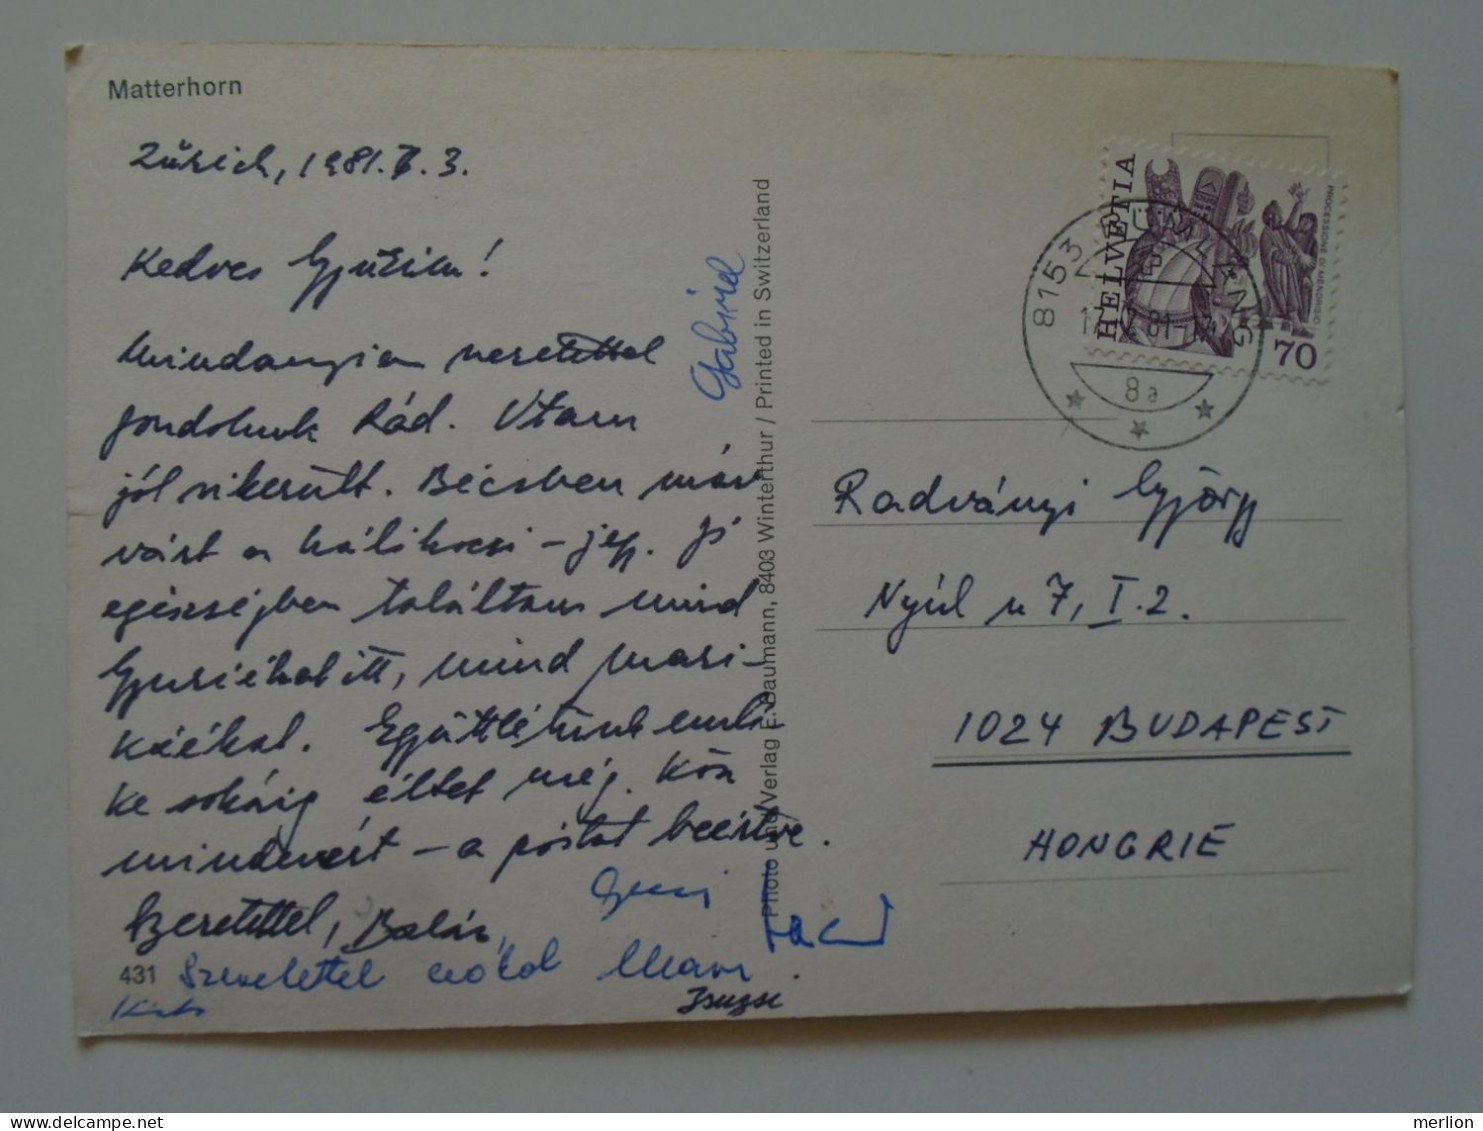 Matterhorn
Zürich, 1981. 7. 3.
Kedves Gyuikám!
Mindannyian szeretettel
gondolunk Rád. Utam
jól sikerült. Bécsben már
várt a hálókocsi-jegy. Jó
egészségben találtam mind
Gyuriékat itt, mind Mari-
káékat. Együttlétünk emlé-
ke sokáig éltet még. Kösz
mindenért - a postát beértve.
Szeretettel, Balázs
Gyuri
Szeretettel csókol Mari
Zsuzsi
431
Gabriel
Photo und Verlag E. Baumann, 8403 Winterthur / Printed in Switzerland
HELVETIA
PROCESSIONE DI MENDRISIO
70
8153 RÜMLANG
8a
Radványi György
Nyúl u 7, I. 2.
1024 BUDAPEST
HONGRIE
merlion